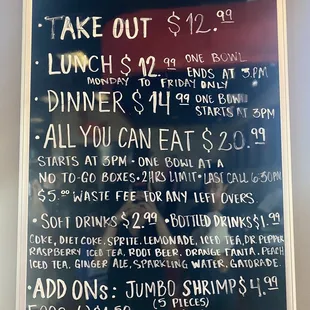 · TAKE OUT $12.99
· LUNCH $12.99 ONE BOWL
ENDS AT 3.PM
MONDAY TO FRIDAY ONLY
· DINNER $14.99 ONE BOWL
STARTS AT 3PM
· ALL YOU CAN EAT $20.99
STARTS AT 3PM · ONE BOWL AT A
NO TO-GO BOXES · 2HRS LIMIT · LAST CALL 6:30PM
$5.00 WASTE FEE FOR ANY LEFT OVERS
· SOFT DRINKS $2.99 · BOTTLED DRINKS $1.99
COKE, DIET COKE, SPRITE, LEMONADE, ICED TEA, DR PEPPER
RASPBERRY ICED TEA, ROOT BEER, ORANGE FANTA, PEACH
ICED TEA, GINGER ALE, SPARKLING WATER, GATORADE.
· ADD ONS: JUMBO SHRIMP $4.99
(5 PIECES)